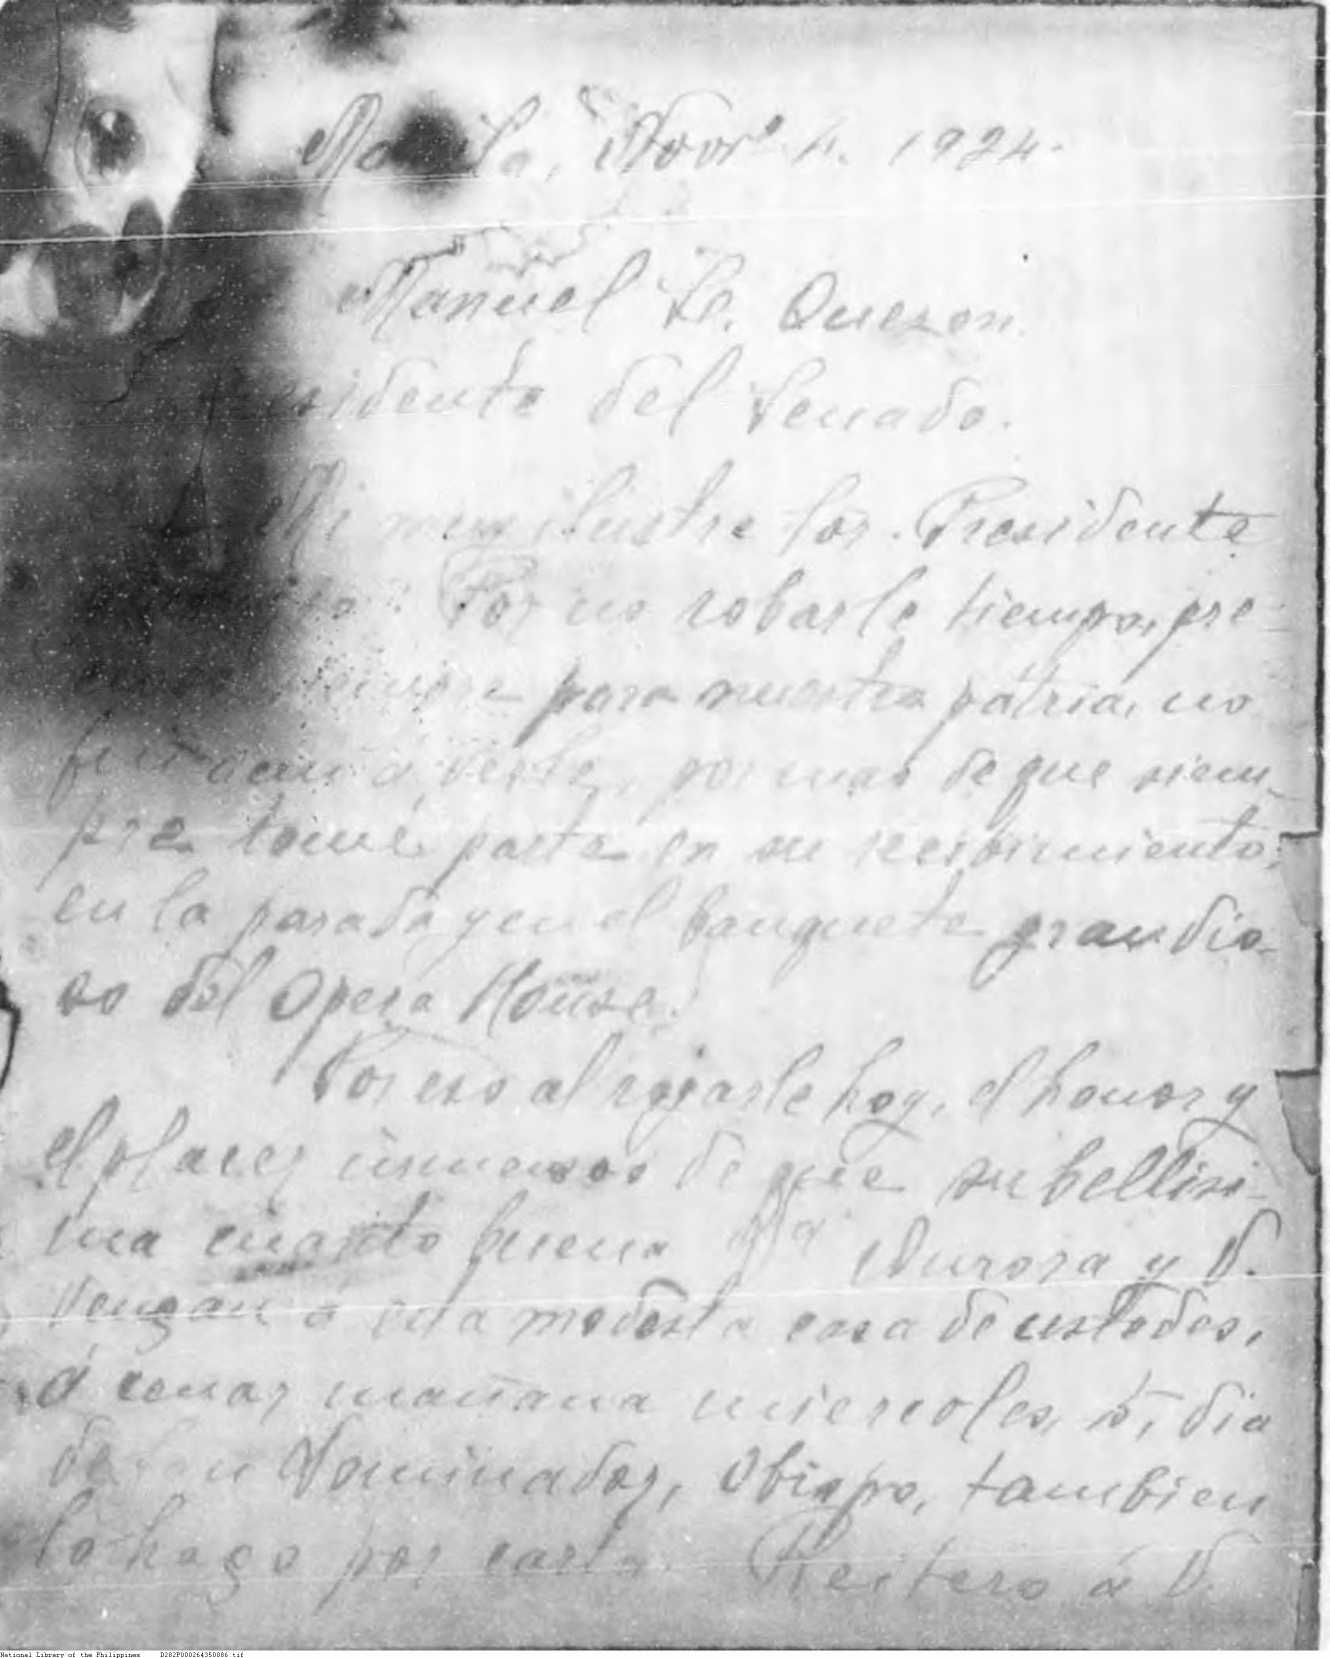 Manila, Novre 4. 1924.
Manuel L. Quezon.
Presidente del Senado.
Mi muy ilustre Sor. Presidente
Por no robarle tiempo, pre-
siempre para nuestra patria, no
á verle, por mas de que siem-
pre tomé parte en su recibimiento,
en la parada y en el banquete grandio-
so del Opera House.
Por eso al rogarle hoy, el honor y
el placer inmensos de que su bellisi-
ma cuanto buena Da Aurora y V.
vengan á esta modesta casa de ustedes,
á cenar mañana miercoles, 5, dia
de San Dominador, Obispo, tambien
lo hago por carta. Reitero á V.
National Library of the Philippines D282P000264350086.tif